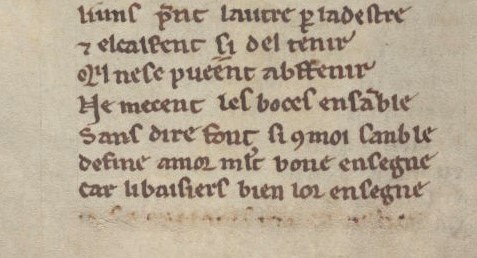 li uns p̃nt lautre ꝑ la destre
⁊ escaifent si del tenir
Qil ne se pueẽnt abstenir
Ne metent les boces ensãble
Sans dire font si ꝯ moi sanble
de fine amor ml̃t bone ensegne
car li baisiers bien lor ensegne